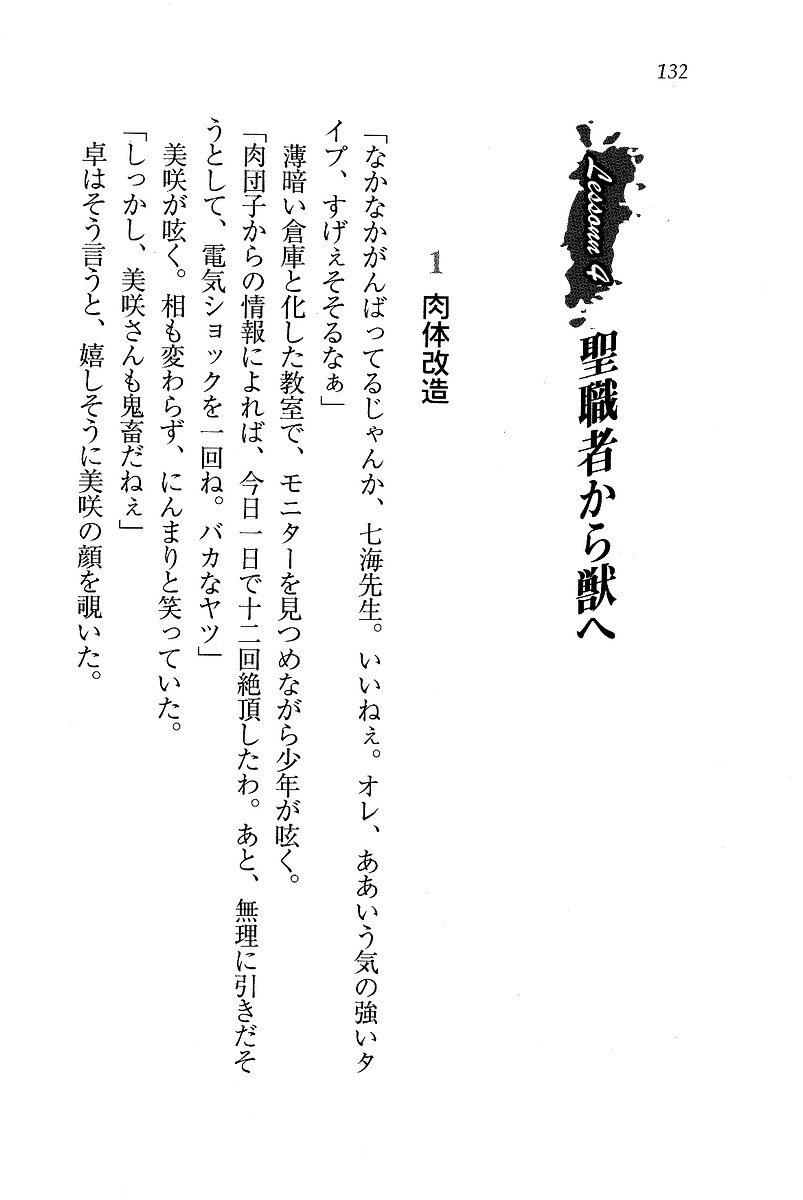 132
Lessonn 4
聖職者から獣へ
1 肉体改造
「なかなかがんばってるじゃんか、七海先生。いいねぇ。オレ、ああいう気の強いタ
イプ、すげぇそそるなぁ」
薄暗い倉庫と化した教室で、モニターを見つめながら少年が呟く。
「肉団子からの情報によれば、今日一日で十二回絶頂したわ。あと、無理に引きだそ
うとして、電気ショックを一回ね。バカなヤツ」
美咲が呟く。相も変わらず、にんまりと笑っていた。
「しっかし、美咲さんも鬼畜だねぇ」
卓はそう言うと、嬉しそうに美咲の顔を覗いた。